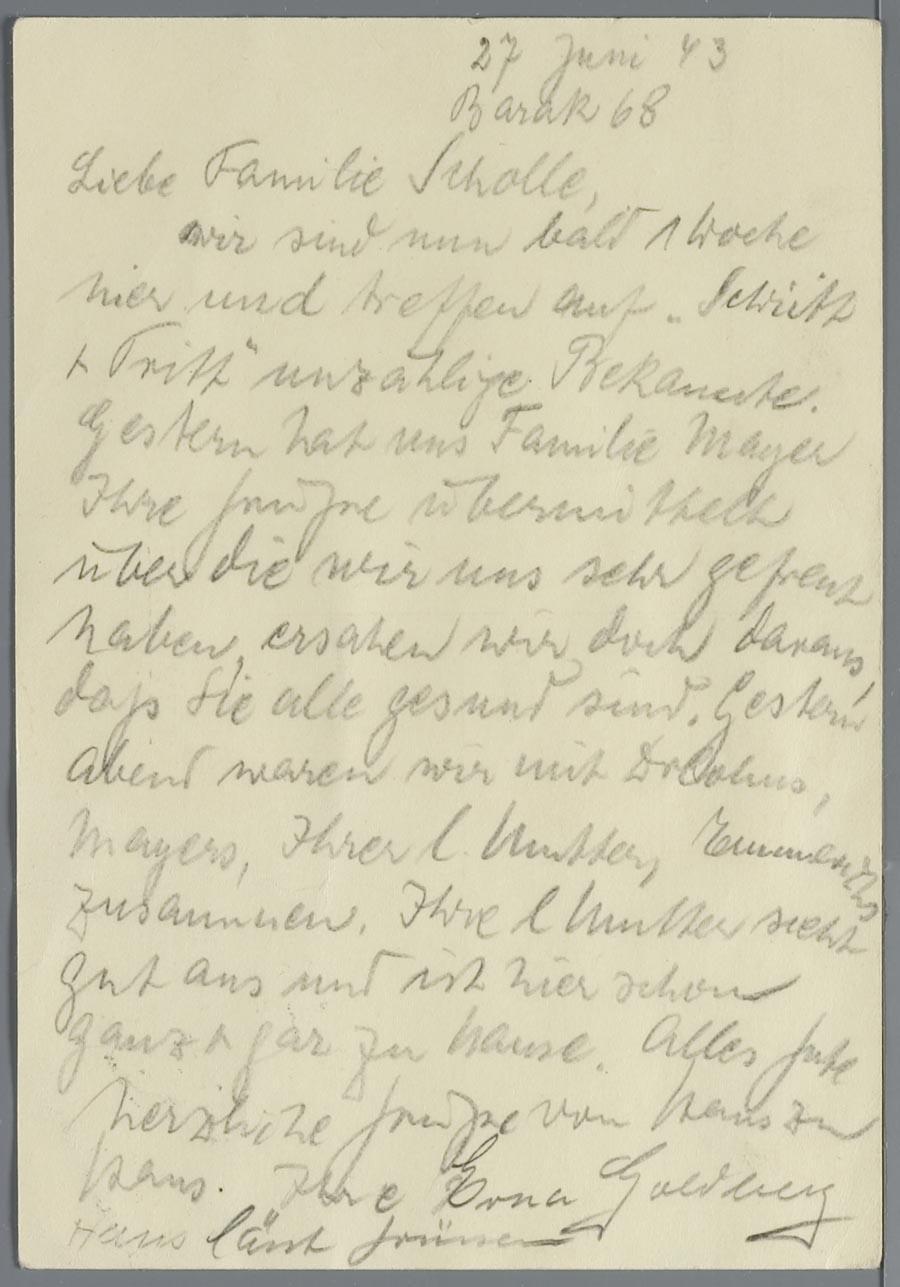 27 Juni 43
Barak 68
Liebe Familie Scholle,
wir sind nun bald 1 Woche
hier und treffen auf „Schritt
+ Tritt" unzählige Bekannte.
Gestern hat uns Familie Mayer
Ihre Grüsse übermittelt
über die wir uns sehr gefreut
haben, ersahen wir doch daraus,
daß Sie alle gesund sind. Gestern
abend waren wir mit Dr Cohns,
Mayers, Ihrer l. Mutter, Emmerichs
zusammen. Ihre l Mutter sieht
gut aus und ist hier schon
ganz + gar zu Hause. Alles Gute
herzliche Grüsse von Haus zu
Haus. Ihre Erna Goldberg
Hans läßt grüssen